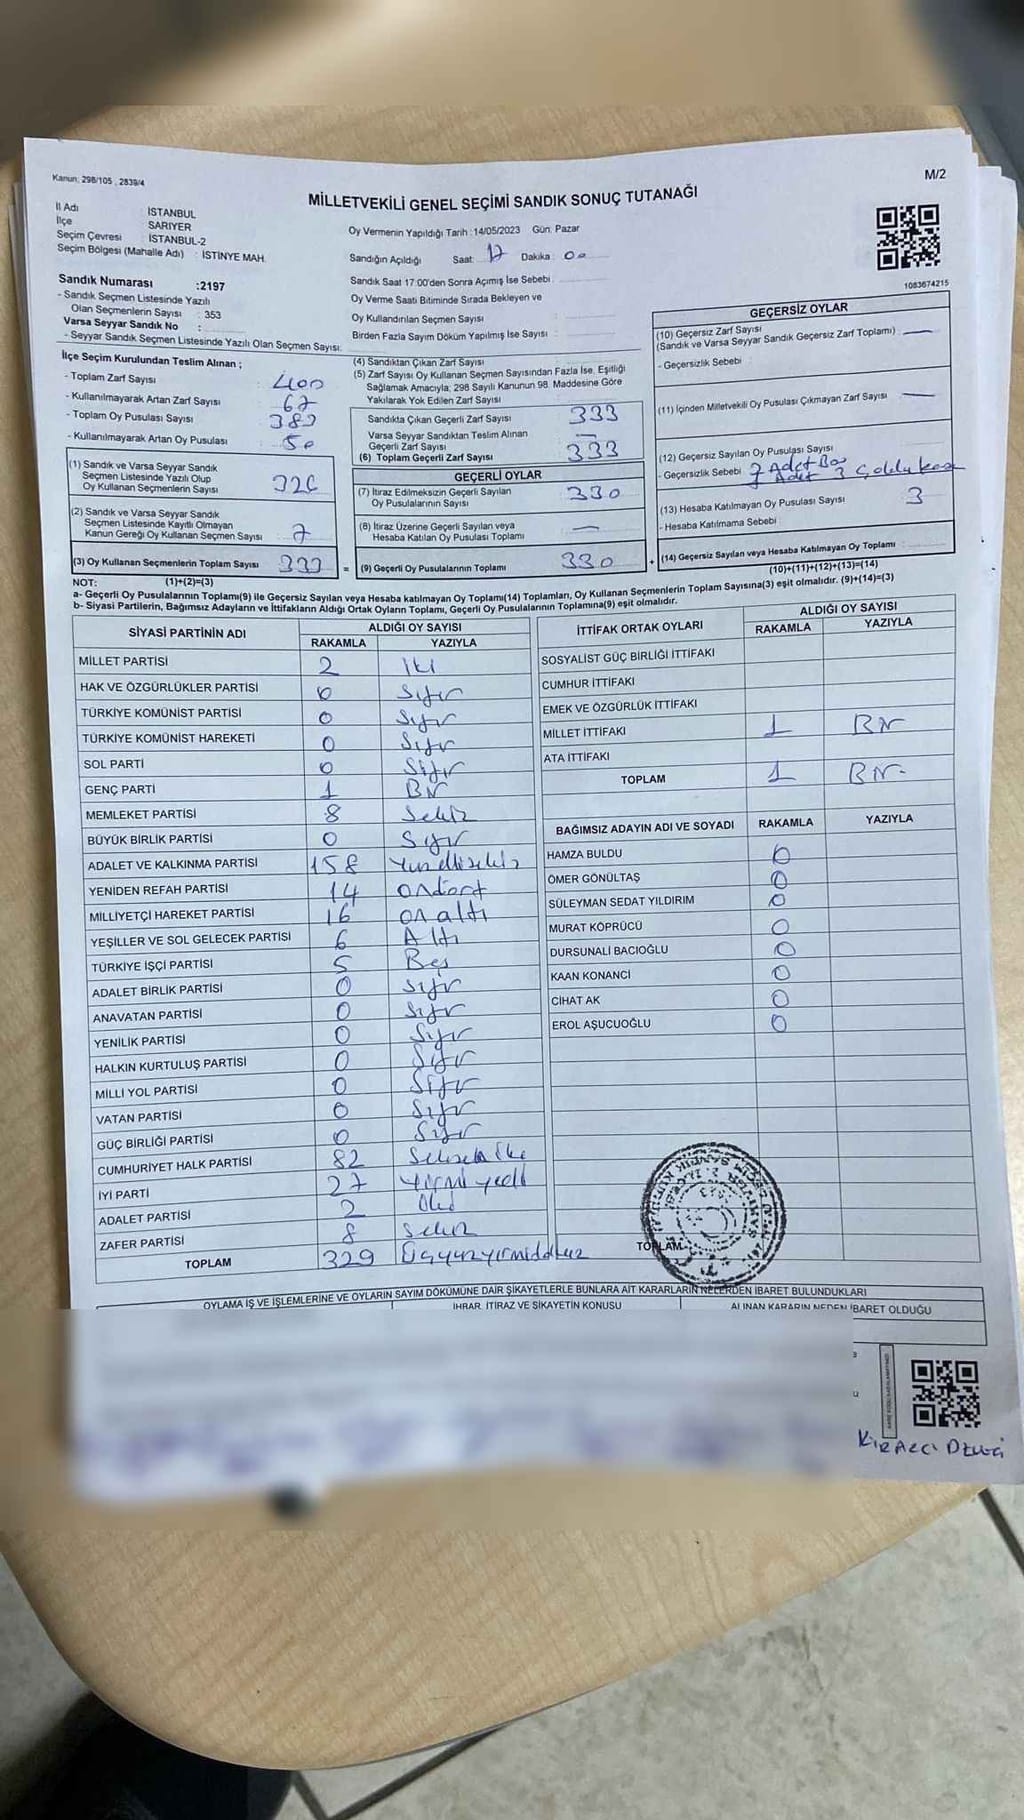 Kanun: 298/105 , 2839/4
M/2
MİLLETVEKİLİ GENEL SEÇİMİ SANDIK SONUÇ TUTANAĞI
İl Adı : İSTANBUL
İlçe : SARIYER
Seçim Çevresi : İSTANBUL-2
Seçim Bölgesi (Mahalle Adı) : İSTİNYE MAH.
Oy Vermenin Yapıldığı Tarih :14/05/2023 Gün: Pazar
Sandığın Açıldığı Saat: 17 Dakika: 00
Sandık Saat 17:00'den Sonra Açımış İse Sebebi :
Oy Verme Saati Bitiminde Sırada Bekleyen ve
Oy Kullandırılan Seçmen Sayısı :
Birden Fazla Sayım Döküm Yapılmış İse Sayısı :
1083674215
Sandık Numarası :2197
- Sandık Seçmen Listesinde Yazılı
Olan Seçmenlerin Sayısı : 353
Varsa Seyyar Sandık No :
- Seyyar Sandık Seçmen Listesinde Yazılı Olan Seçmen Sayısı:
İlçe Seçim Kurulundan Teslim Alınan ;
- Toplam Zarf Sayısı : 400
- Kullanılmayarak Artan Zarf Sayısı : 67
- Toplam Oy Pusulası Sayısı : 383
- Kullanılmayarak Artan Oy Pusulası : 50
(1) Sandık ve Varsa Seyyar Sandık
Seçmen Listesinde Yazılı Olup
Oy Kullanan Seçmenlerin Sayısı : 326
(2) Sandık ve Varsa Seyyar Sandık
Seçmen Listesinde Kayıtlı Olmayan
Kanun Gereği Oy Kullanan Seçmen Sayısı : 7
(3) Oy Kullanan Seçmenlerin Toplam Sayısı : 333
(4) Sandıktan Çıkan Zarf Sayısı :
(5) Zarf Sayısı Oy Kullanan Seçmen Sayısından Fazla İse, Eşitliği
Sağlamak Amacıyla; 298 Sayılı Kanunun 98. Maddesine Göre
Yakılarak Yok Edilen Zarf Sayısı :
Sandıkta Çıkan Geçerli Zarf Sayısı : 333
Varsa Seyyar Sandıktan Teslim Alınan
Geçerli Zarf Sayısı : —
(6) Toplam Geçerli Zarf Sayısı : 333
GEÇERLİ OYLAR
(7) İtiraz Edilmeksizin Geçerli Sayılan
Oy Pusulalarının Sayısı : 330
(8) İtiraz Üzerine Geçerli Sayılan veya
Hesaba Katılan Oy Pusulası Toplamı : —
= (9) Geçerli Oy Pusulalarının Toplamı : 330 +
GEÇERSİZ OYLAR
(10) Geçersiz Zarf Sayısı
(Sandık ve Varsa Seyyar Sandık Geçersiz Zarf Toplamı) : —
- Geçersizlik Sebebi :
(11) İçinden Milletvekili Oy Pusulası Çıkmayan Zarf Sayısı : —
(12) Geçersiz Sayılan Oy Pusulası Sayısı :
- Geçersizlik Sebebi :
(13) Hesaba Katılmayan Oy Pusulası Sayısı : 3
- Hesaba Katılmama Sebebi :
(14) Geçersiz Sayılan veya Hesaba Katılmayan Oy Toplamı :
(10)+(11)+(12)+(13)=(14)
NOT: (1)+(2)=(3)
a- Geçerli Oy Pusulalarının Toplamı(9) ile Geçersiz Sayılan veya Hesaba katılmayan Oy Toplamı(14) Toplamları, Oy Kullanan Seçmenlerin Toplam Sayısına(3) eşit olmalıdır. (9)+(14)=(3)
b- Siyasi Partilerin, Bağımsız Adayların ve İttifakların Aldığı Ortak Oyların Toplamı, Geçerli Oy Pusulalarının Toplamına(9) eşit olmalıdır.
SİYASİ PARTİNİN ADI ALDIĞI OY SAYISI
RAKAMLA YAZIYLA
MİLLET PARTİSİ 2 İki
HAK VE ÖZGÜRLÜKLER PARTİSİ 0 Sıfır
TÜRKİYE KOMÜNİST PARTİSİ 0 Sıfır
TÜRKİYE KOMÜNİST HAREKETİ 0 Sıfır
SOL PARTİ 0 Sıfır
GENÇ PARTİ 1 Bir
MEMLEKET PARTİSİ 8 Sekiz
BÜYÜK BİRLİK PARTİSİ 0 Sıfır
ADALET VE KALKINMA PARTİSİ 158 Yüzellisekiz
YENİDEN REFAH PARTİSİ 14 ondört
MİLLİYETÇİ HAREKET PARTİSİ 16 on altı
YEŞİLLER VE SOL GELECEK PARTİSİ 6 Altı
TÜRKİYE İŞÇİ PARTİSİ 5 Beş
ADALET BİRLİK PARTİSİ 0 sıfır
ANAVATAN PARTİSİ 0 sıfır
YENİLİK PARTİSİ 0 Sıfır
HALKIN KURTULUŞ PARTİSİ 0 Sıfır
MİLLİ YOL PARTİSİ 0 Sıfır
VATAN PARTİSİ 0 Sıfır
GÜÇ BİRLİĞİ PARTİSİ 0 Sıfır
CUMHURİYET HALK PARTİSİ 82 Seksen iki
İYİ PARTİ 27 yirmi yedi
ADALET PARTİSİ 2
ZAFER PARTİSİ 8 Sekiz
TOPLAM 329 Üçyüzyirmidokuz
İTTİFAK ORTAK OYLARI ALDIĞI OY SAYISI
RAKAMLA YAZIYLA
SOSYALİST GÜÇ BİRLİĞİ İTTİFAKI
CUMHUR İTTİFAKI
EMEK VE ÖZGÜRLÜK İTTİFAKI
MİLLET İTTİFAKI 1 Bir
ATA İTTİFAKI
TOPLAM 1 Bir
BAĞIMSIZ ADAYIN ADI VE SOYADI RAKAMLA YAZIYLA
HAMZA BULDU 0
ÖMER GÖNÜLTAŞ 0
SÜLEYMAN SEDAT YILDIRIM 0
MURAT KÖPRÜCÜ 0
DURSUNALİ BACIOĞLU 0
KAAN KONANCİ 0
CİHAT AK 0
EROL AŞUCUOĞLU 0
TOPLAM
OYLAMA İŞ VE İŞLEMLERİNE VE OYLARIN SAYIM DÖKÜMÜNE DAİR ŞİKAYETLERLE BUNLARA AİT KARARLARIN NELERDEN İBARET BULUNDUKLARI
İHBAR, İTİRAZ VE ŞİKAYETİN KONUSU
ALINAN KARARIN NEDEN İBARET OLDUĞU